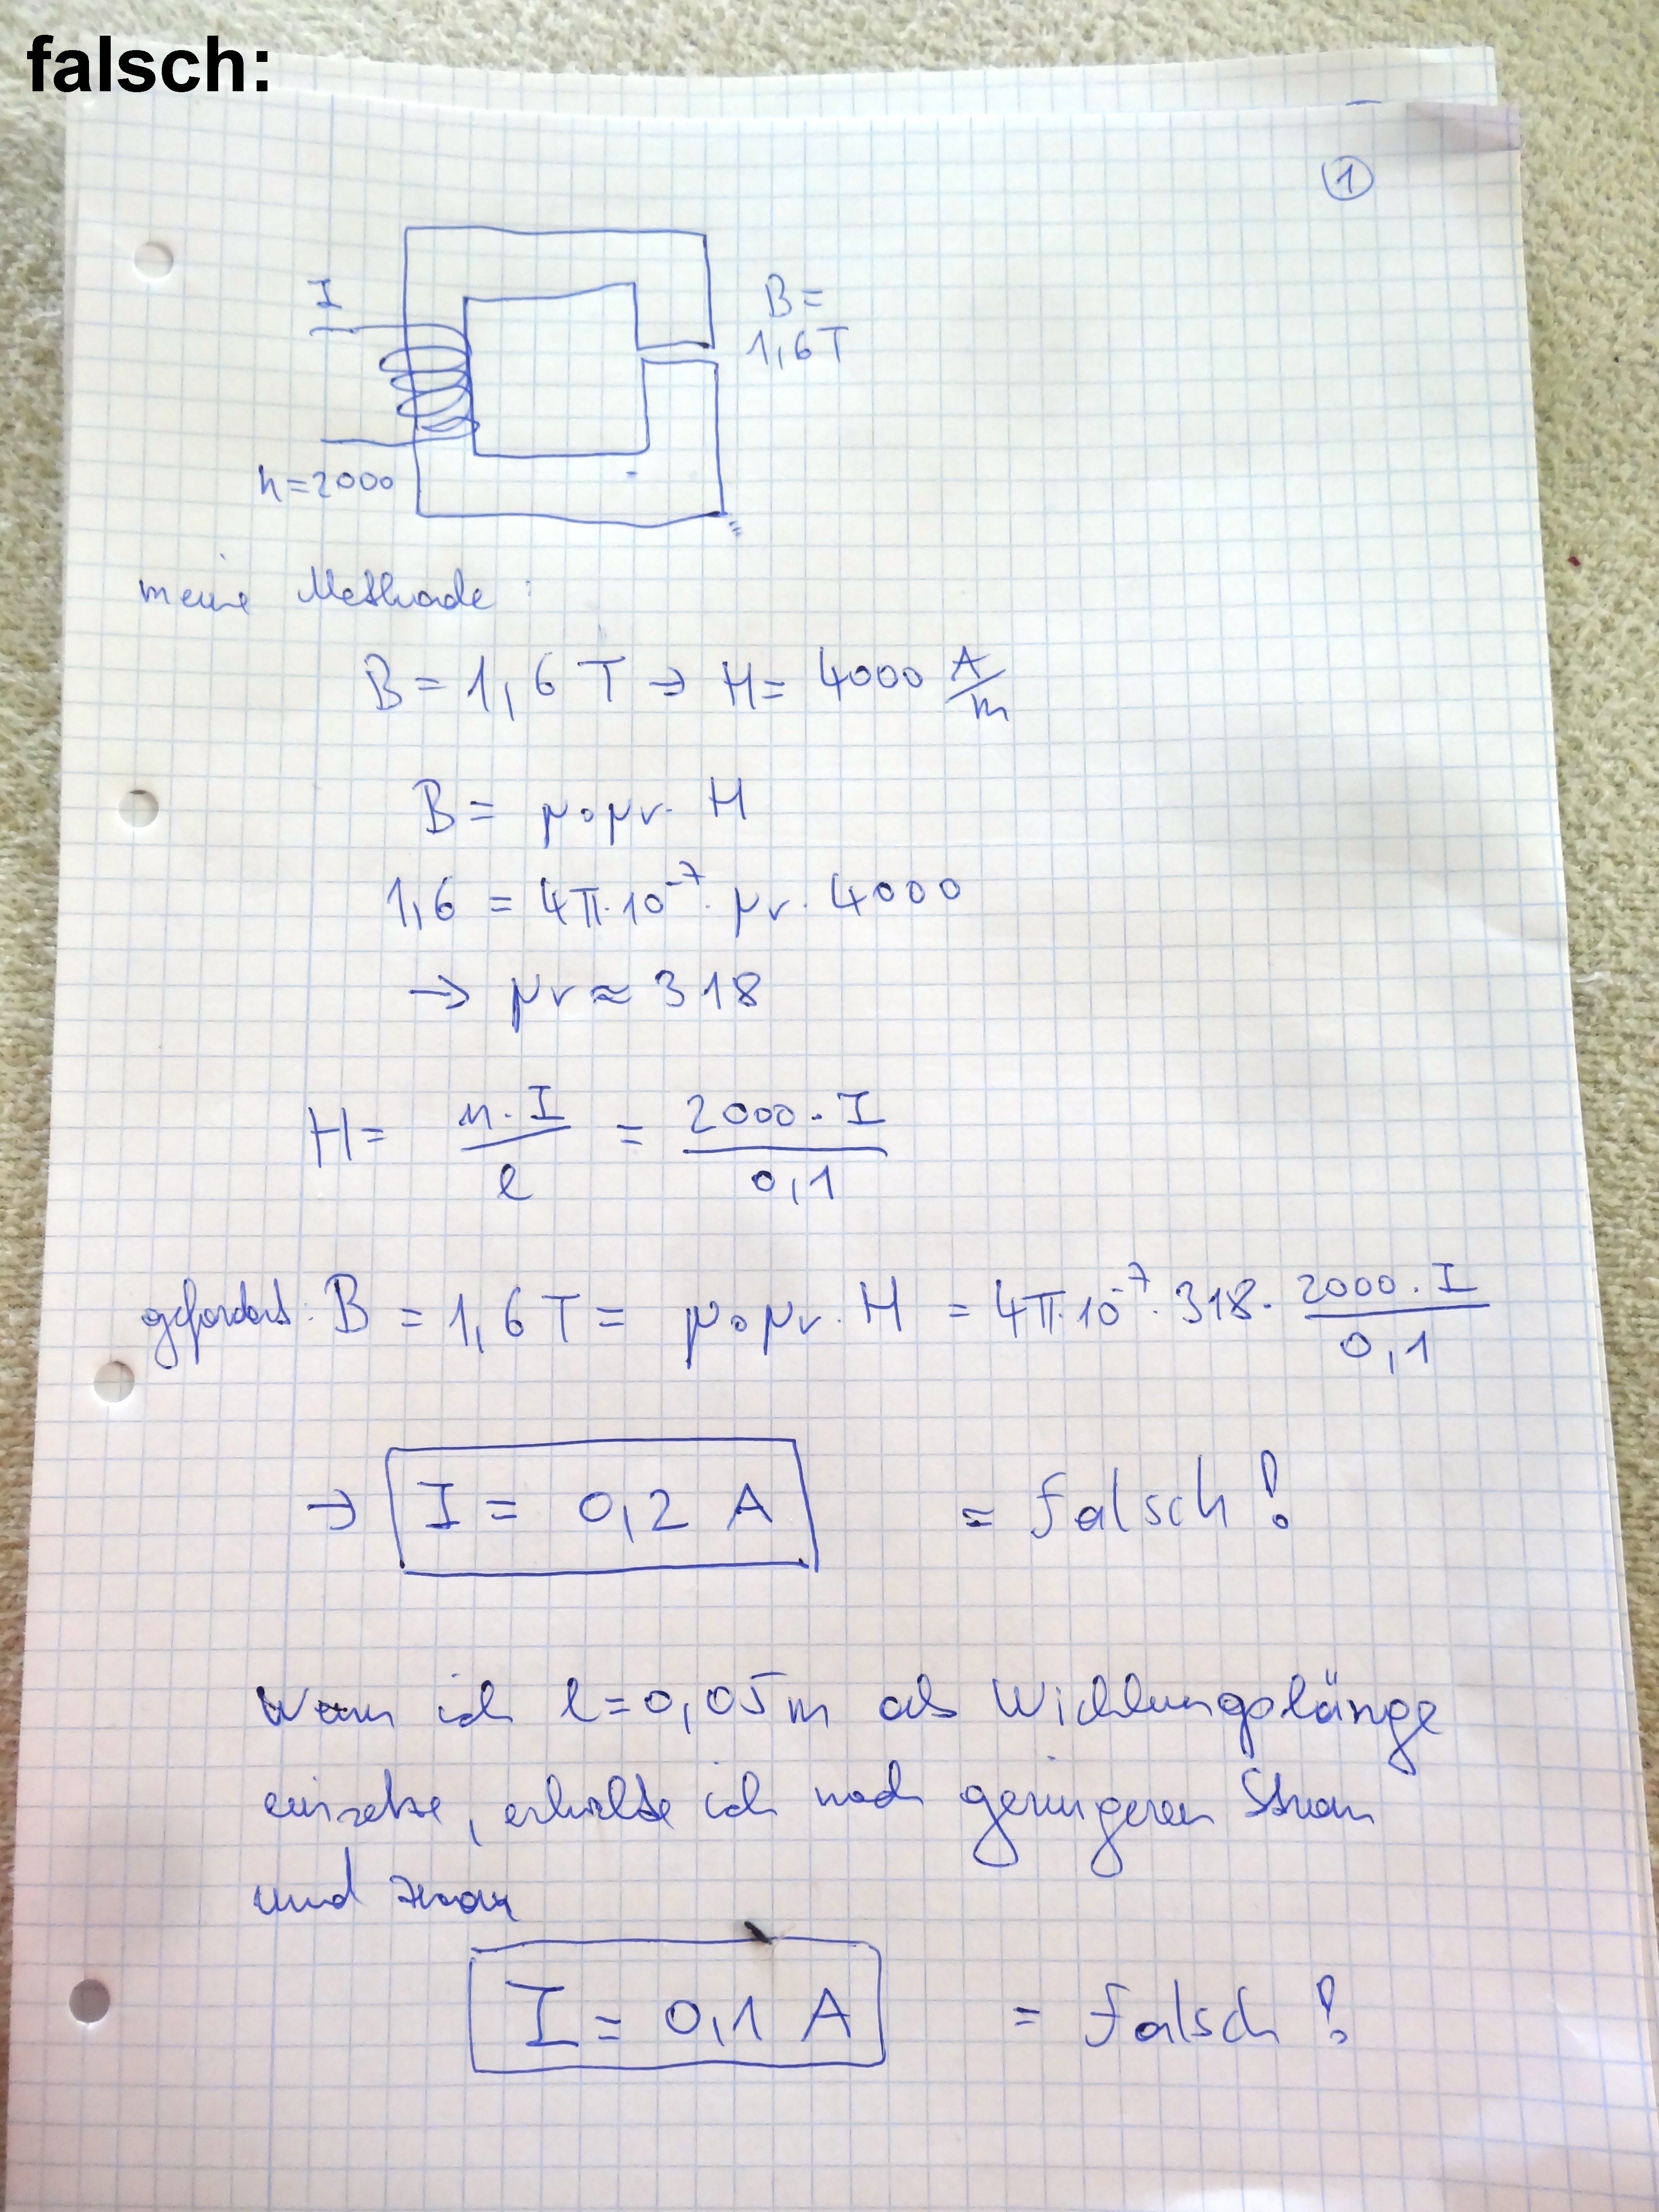 falsch:
1
I
B =
1,6 T
n = 2000
meine Methode :
B = 1,6 T → H = 4000 A/m
B = μ0 μr · H
1,6 = 4π · 10^-7 · μr · 4000
→ μr ≈ 318
H = n · I / l = 2000 · I / 0,1
gefordert : B = 1,6 T = μ0 μr · H = 4π · 10^-7 · 318 · 2000 · I / 0,1
→ I = 0,2 A = falsch !
Wenn ich l = 0,05 m als Wicklungslänge
einsetze, erhalte ich noch geringeren Strom
und zwar
I = 0,1 A = falsch !